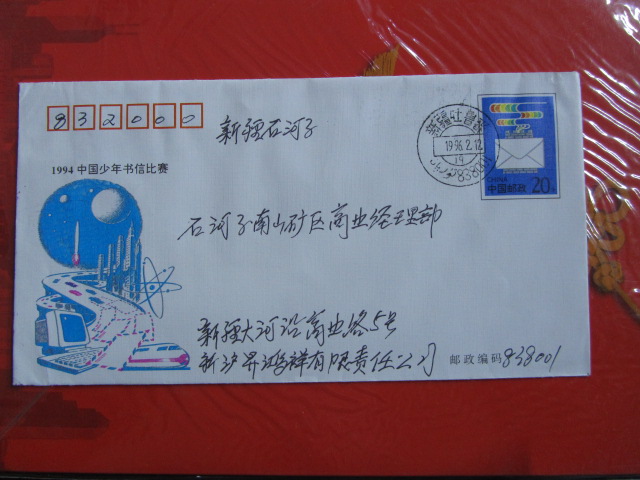 832000
新疆石河子
新疆吐鲁番
1996.2.12
19
838001
CHINA
中国邮政 20分
1994 中国少年书信比赛
石河子南山矿区商业经理部
新疆大河沿商业路5号
新沪昇鸿祥有限责任公司
邮政编码 838001